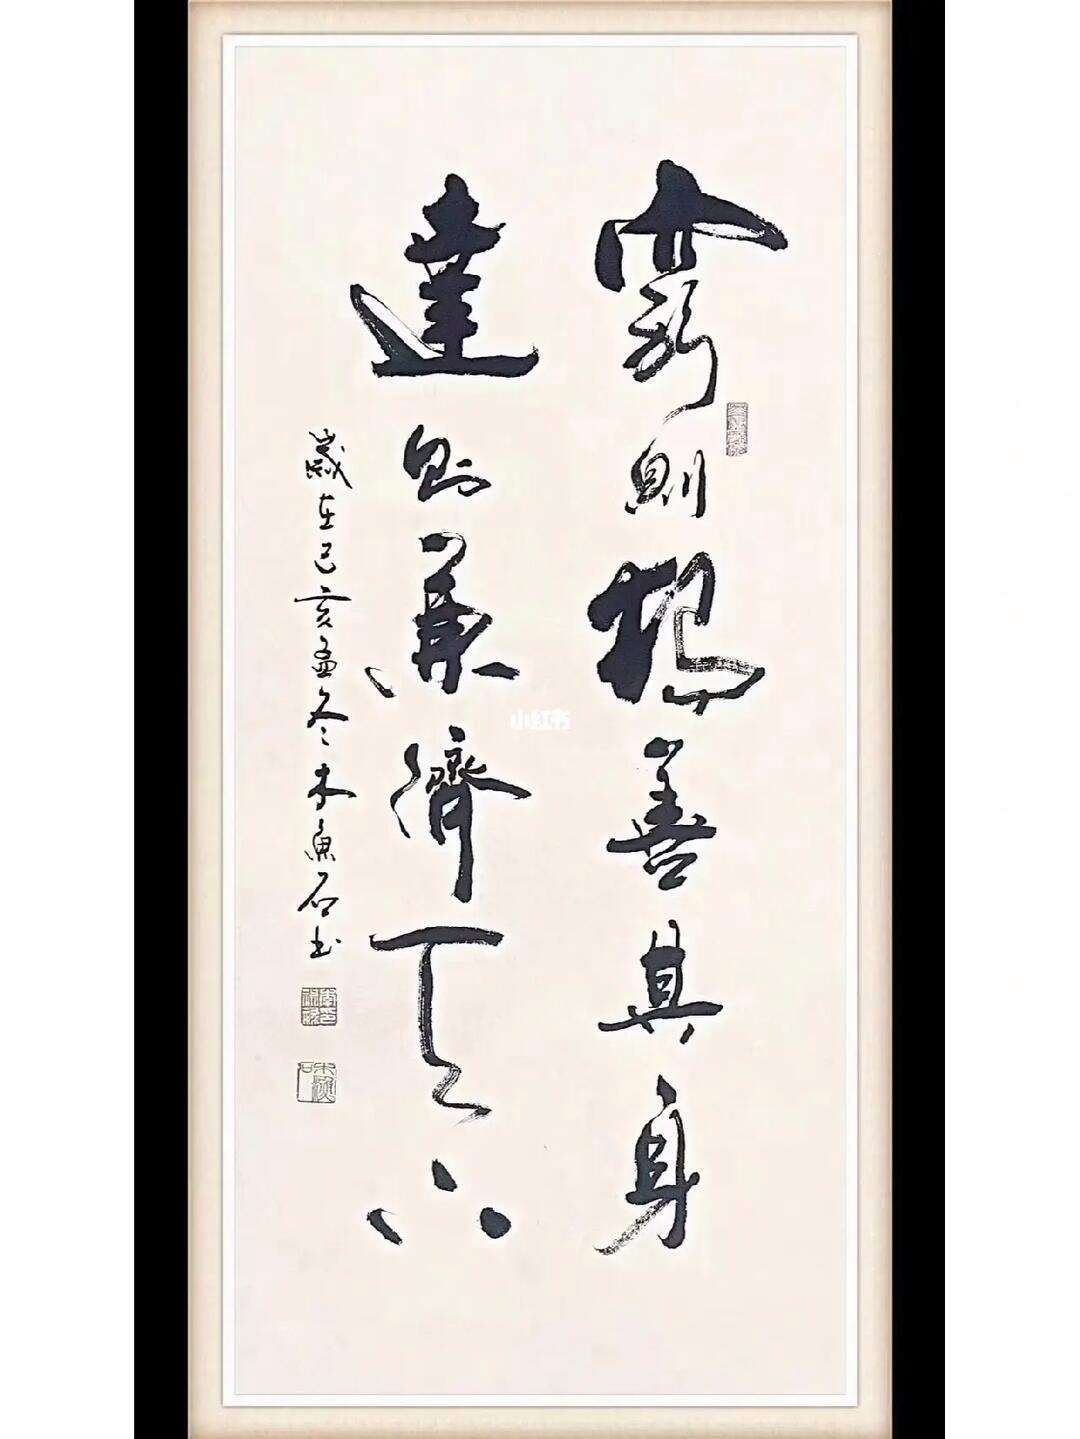 窮則獨善其身
達則兼濟天下
歲在己亥孟冬木魚石書
小红书